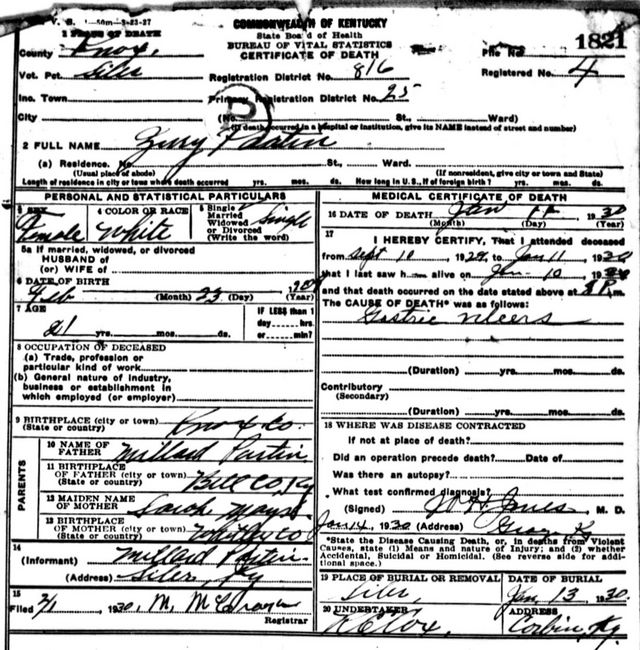 V. S. 1-50m-3-23-27
COMMONWEALTH OF KENTUCKY
State Board of Health
BUREAU OF VITAL STATISTICS
CERTIFICATE OF DEATH
1 PLACE OF DEATH
County Knox
File No. 1821
Vot. Pct. Siler
Registration District No. 816
Registered No. 4
Inc. Town
Primary Registration District No. 25
City (No. St., Ward)
(If death occurred in a hospital or institution, give its NAME instead of street and number)
2 FULL NAME Partin
(a) Residence. No St., Ward.
(Usual place of abode) (If nonresident, give city or town and State)
Length of residence in city or town where death occurred yrs. mos. ds. How long in U.S., if of foreign birth? yrs. mos. ds.
PERSONAL AND STATISTICAL PARTICULARS
3 SEX Female
4 COLOR OR RACE White
5 Single
Married
Widowed
or Divorced
(Write the word) Single
5a If married, widowed, or divorced
HUSBAND of
(or) WIFE of
6 DATE OF BIRTH
Feb 23
(Month) (Day) (Year)
7 AGE
21 yrs. mos. ds.
IF LESS than 1
day hrs.
or min?
8 OCCUPATION OF DECEASED
(a) Trade, profession or
particular kind of work
(b) General nature of industry,
business or establishment in
which employed (or employer)
9 BIRTHPLACE (city or town) Knox Co.
(State or country)
PARENTS
10 NAME OF
FATHER Millard Partin
11 BIRTHPLACE
OF FATHER (city or town)
(State or country) Bell Co, Ky
12 MAIDEN NAME
OF MOTHER Sarah Mays
13 BIRTHPLACE
OF MOTHER (city or town)
(State or country) Whitley Co
14
(Informant) Millard Partin
(Address) Siler, Ky
15
Filed 2/1, 1930. M.
Registrar
MEDICAL CERTIFICATE OF DEATH
16 DATE OF DEATH Jan 11 1930
(Month) (Day) (Year)
17
I HEREBY CERTIFY, That I attended deceased
from Sept 10 1929, to Jan 11 1930
that I last saw h alive on Jan 10 1930
and that death occurred on the date stated above at 8 P. m.
The CAUSE OF DEATH* was as follows:
Gastric Ulcers
(Duration) yrs. mos. ds.
Contributory
(Secondary)
(Duration) yrs. mos. ds.
18 WHERE WAS DISEASE CONTRACTED
If not at place of death?
Did an operation precede death? Date of
Was there an autopsy?
What test confirmed diagnosis?
(Signed) Jones M. D.
Jan 14 1930 (Address) Gray K
*State the Disease Causing Death, or, in deaths from Violent
Causes, state (1) Means and nature of Injury; and (2) whether
Accidental, Suicidal or Homicidal. (See reverse side for addi-
tional space.)
19 PLACE OF BURIAL OR REMOVAL
Siler,
DATE OF BURIAL
Jan, 13 1930.
20 UNDERTAKER
Cox,
ADDRESS
Corbin, Ky.